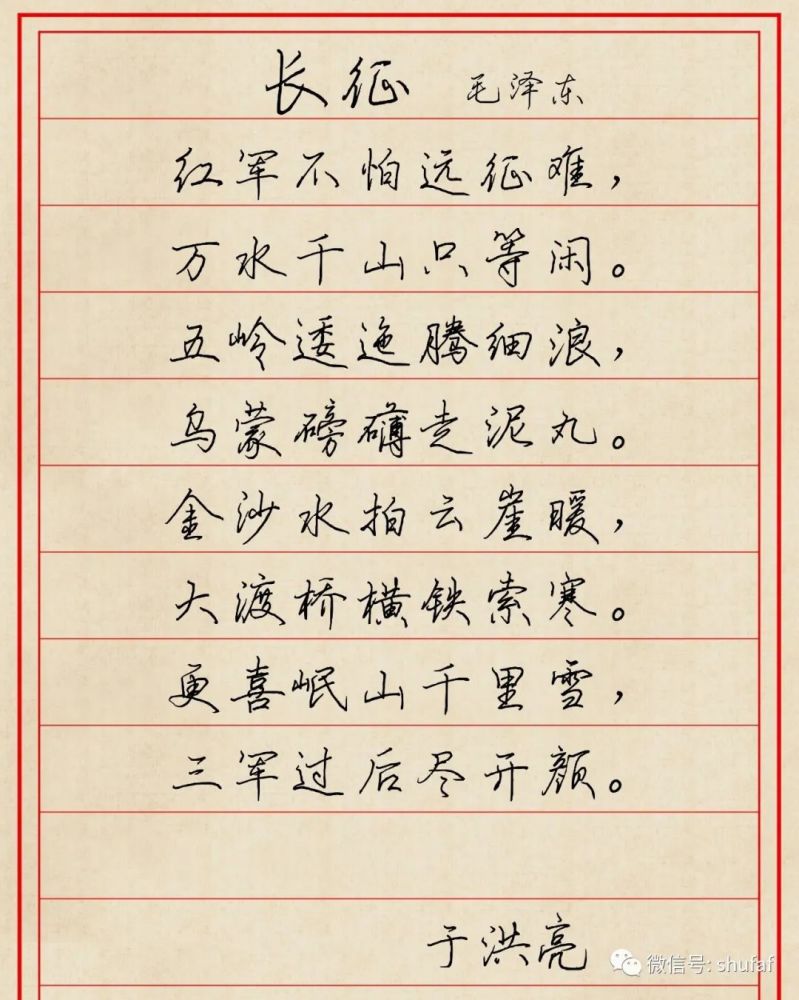 长征 毛泽东
红军不怕远征难，
万水千山只等闲。
五岭逶迤腾细浪，
乌蒙磅礴走泥丸。
金沙水拍云崖暖，
大渡桥横铁索寒。
更喜岷山千里雪，
三军过后尽开颜。
于洪亮
微信号: shufaf